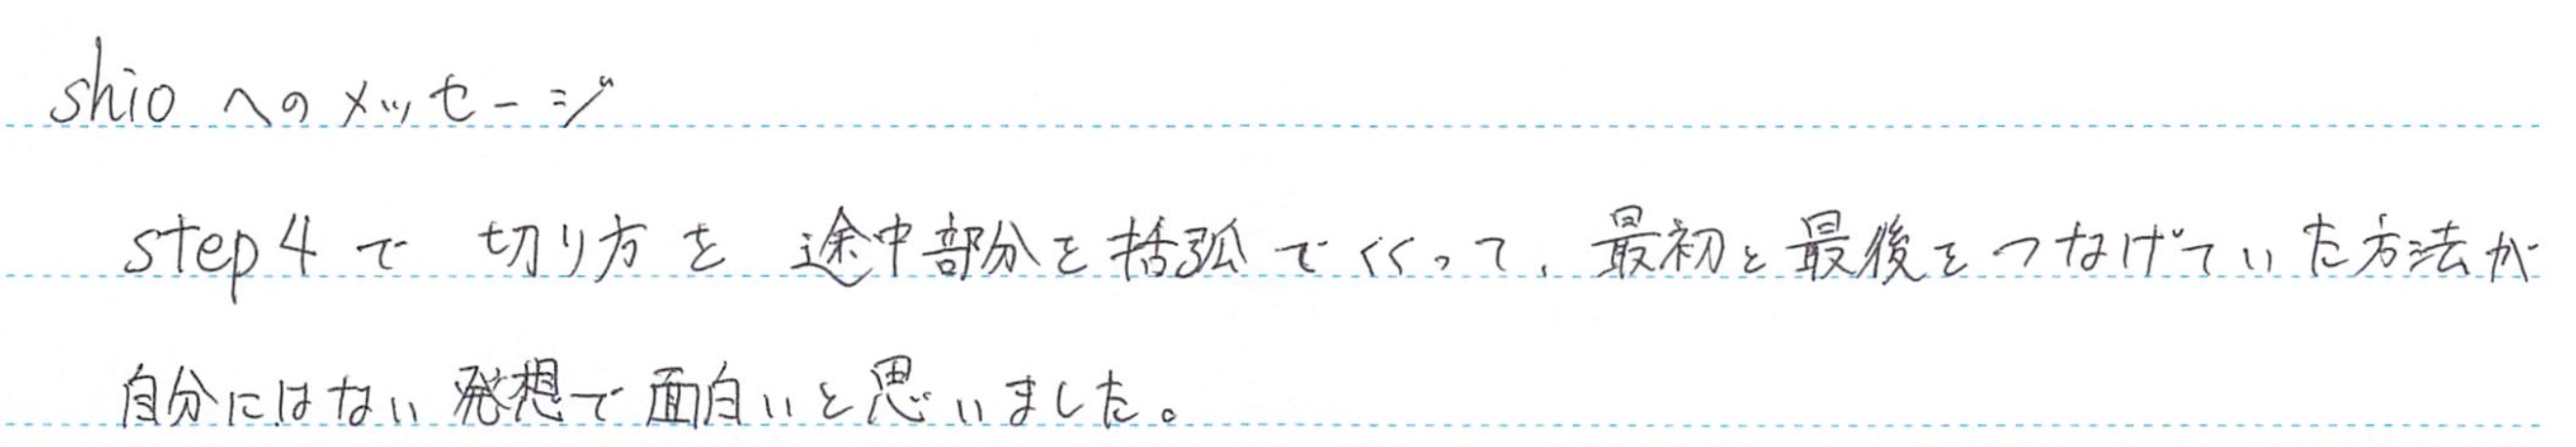 shioへのメッセージ
step4で 切り方を 途中部分を括弧でくくって、最初と最後をつなげていた方法が
自分にはない発想で面白いと思いました。